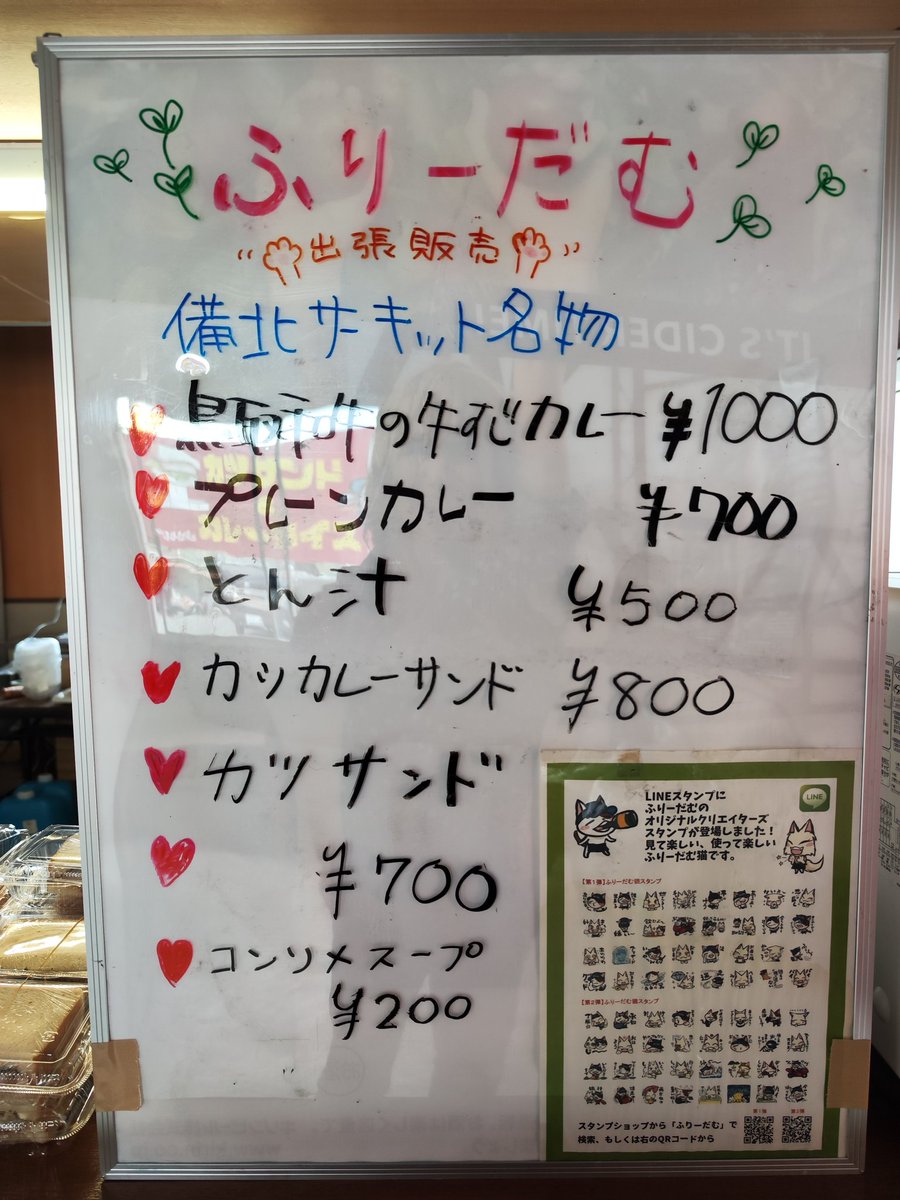 ふりーだむ
出張販売
備北サーキット名物
鳥取和牛の牛すじカレー ¥1000
プレーンカレー ¥700
とん汁 ¥500
カツカレーサンド ¥800
カツサンド
¥700
コンソメスープ
¥200
LINEスタンプに
ふりーだむの
オリジナルクリエイターズ
スタンプが登場しました!
見て楽しい、使って楽しい
ふりーだむ猫です。
LINE
【第1弾】ふりーだむ猫スタンプ
【第2弾】ふりーだむ猫スタンプ
第1弾 第2弾
スタンプショップから「ふりーだむ」で
検索、もしくは右のQRコードから